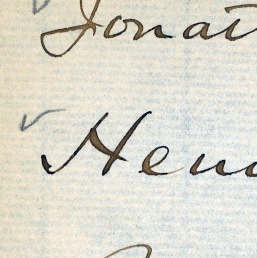 Jonat
Hen